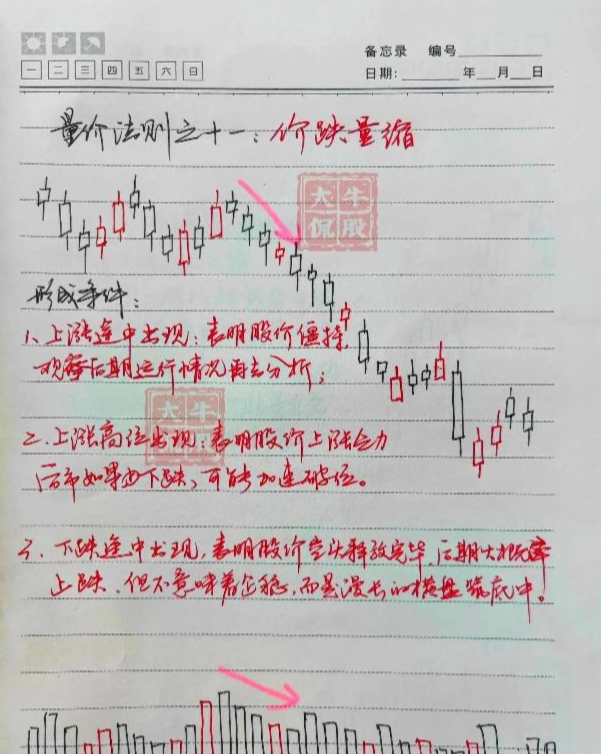 备忘录 编号
一 二 三 四 五 六 日
日期: 年 月 日
量价法则之十一：价跌量缩
大牛
侃股
形成条件：
1、上涨途中出现：表明股价僵持，
观察后期运行情况再去分析；
大牛
2、上涨高位出现：表明股价上涨乏力
后市如果再下跌，可能加速破位。
3、下跌途中出现，表明股价空头释放完毕，后期大概率
止跌，但不意味着企稳，而是漫长的横盘筑底中。